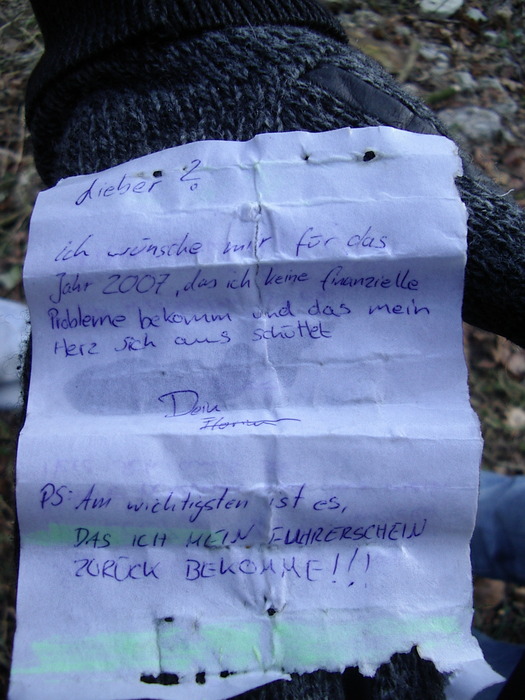 Lieber ?
ich wünsche mir für das
Jahr 2007, das ich keine finanzielle
Probleme bekomm und das mein
Herz sich aus schüttet
Dein
PS: Am wichtigsten ist es,
DAS ICH MEIN FÜHRERSCHEIN
ZURÜCK BEKOMME!!!